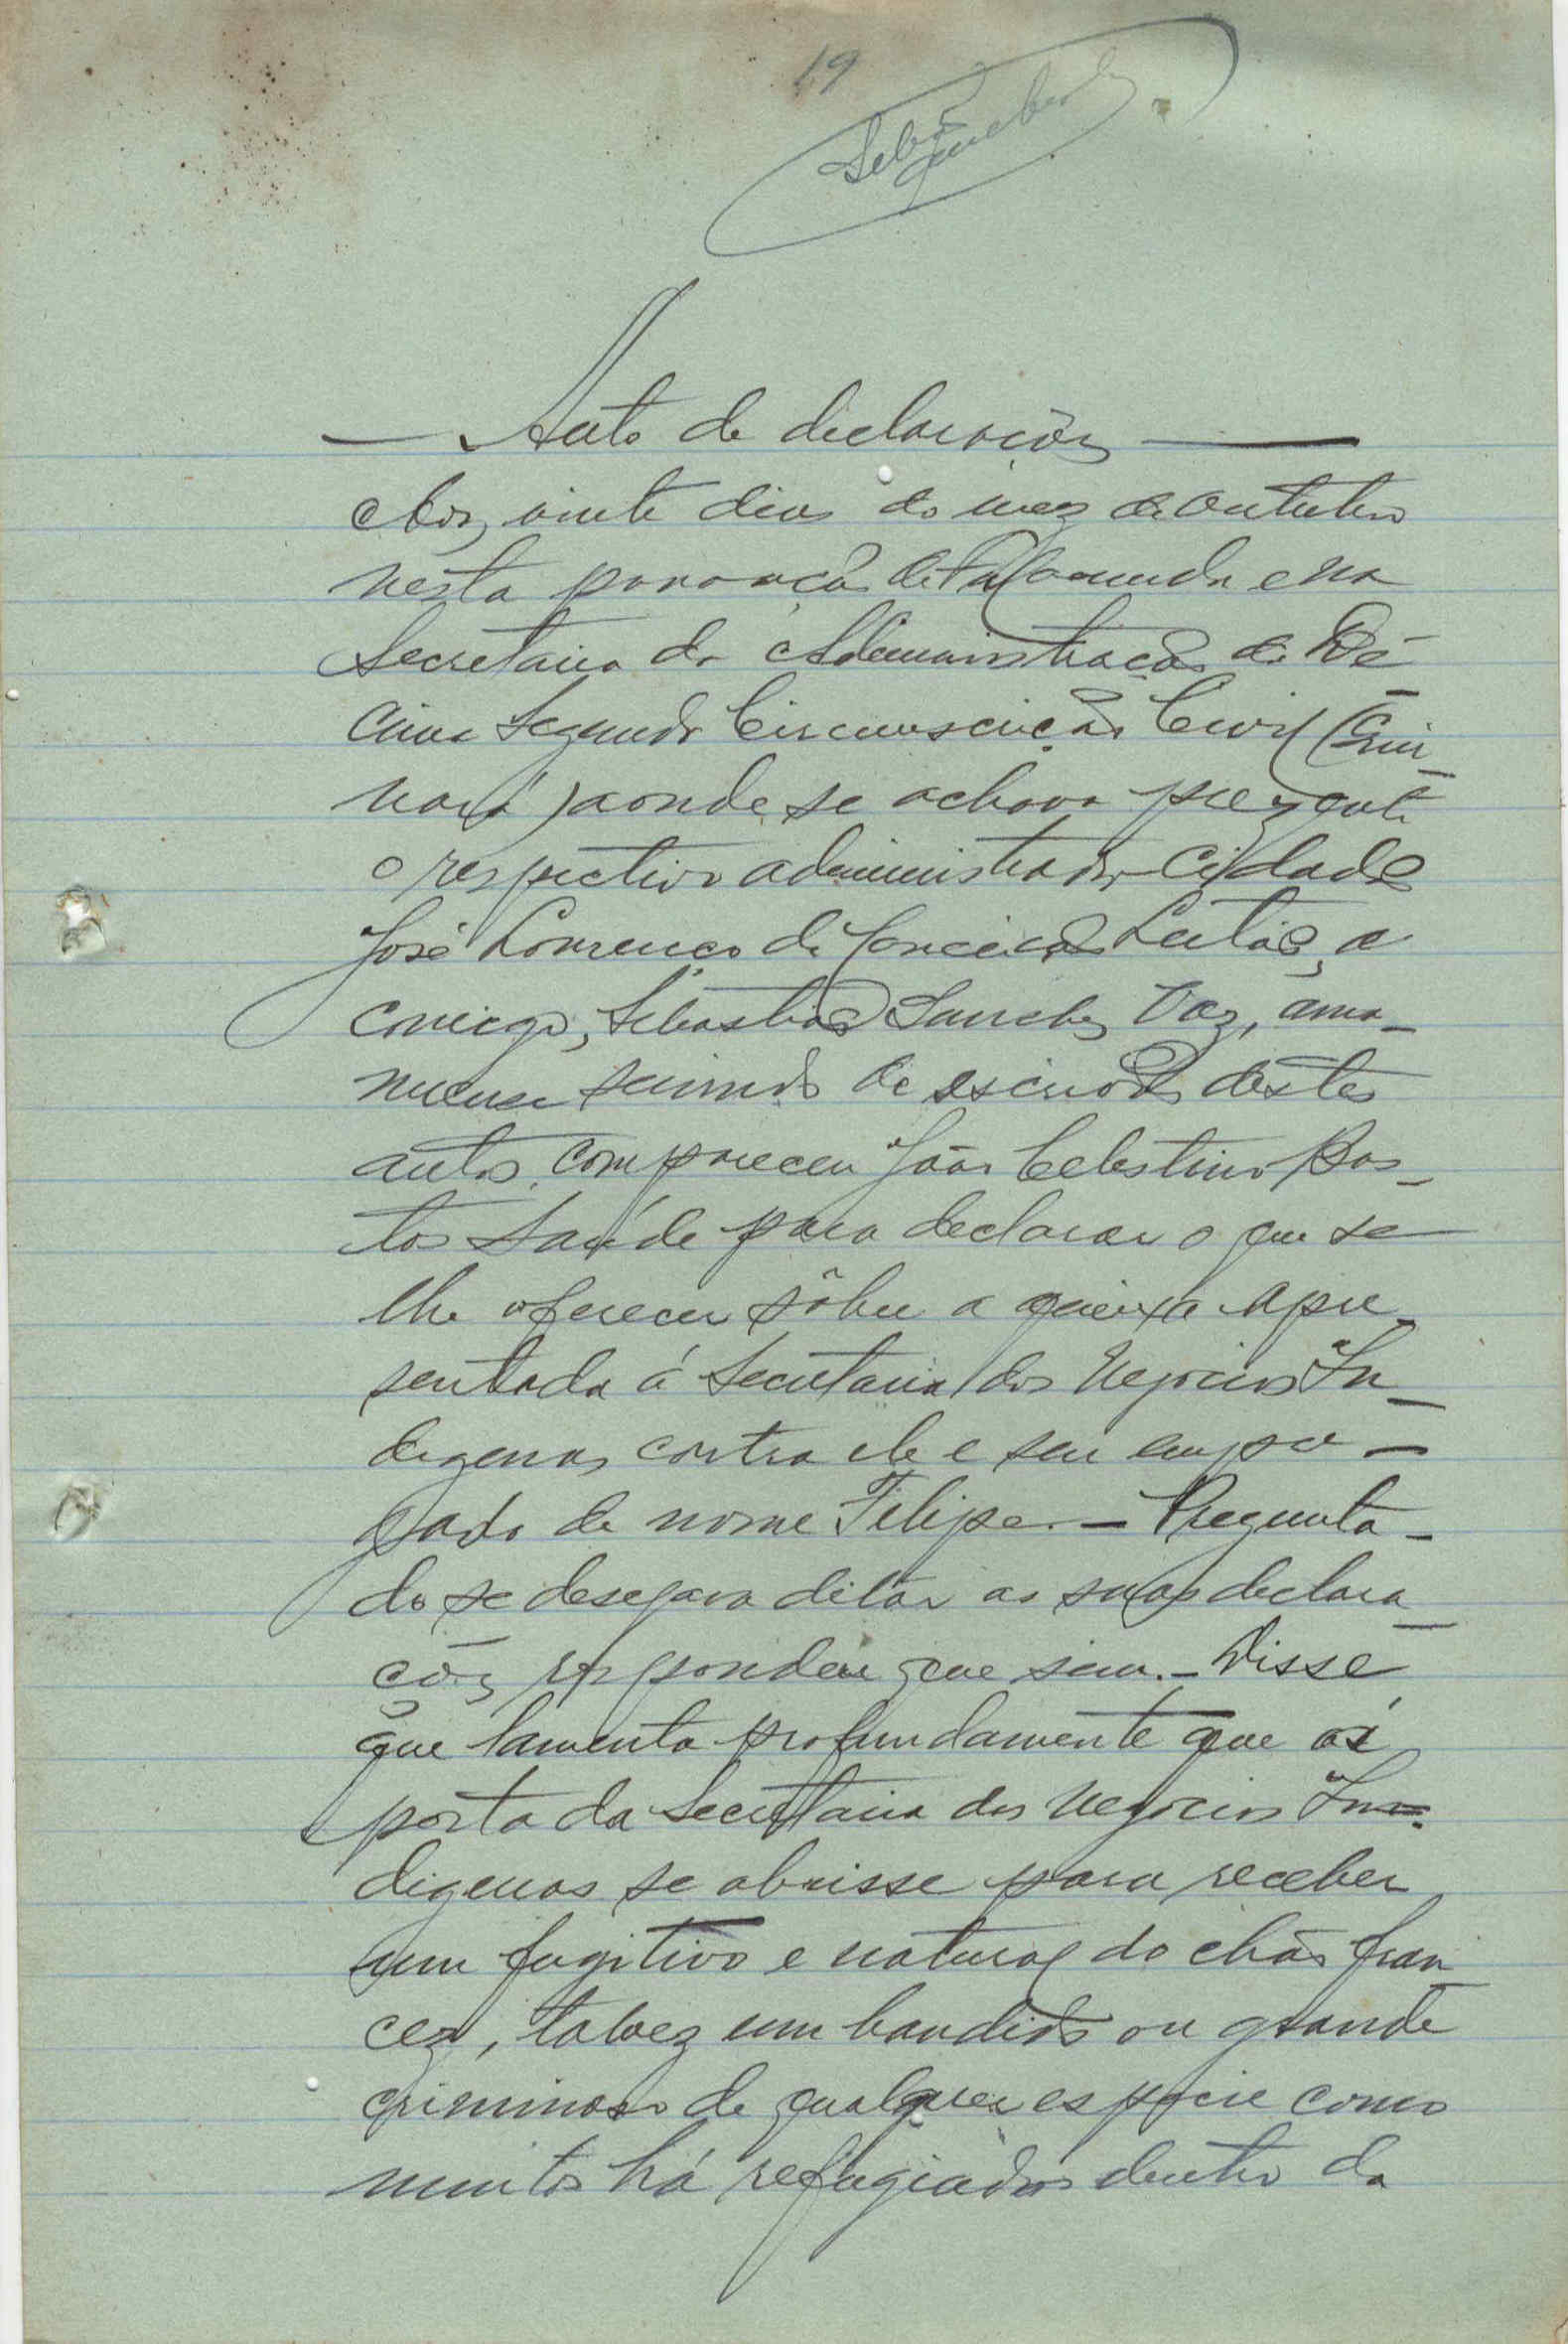 19
— Auto de declarações —
Aos vinte dias do mez de Outubro
nesta povoação de e na
Secretaria da Administração da Dé-
cima Segunda Circunscrição Civil (Gui-
nará) aonde se achava prezente
o respectivo administrador Cidadão
José Lourenço da Conceição Leitão, e
comigo, Sebastião Sanches Vaz, ama-
nuense servindo de escrivão destes
autos, compareceu João Celestino Bas-
tos Saúde para declarar o que se
lhe oferecer sôbre a queixa apre-
sentada á Secretaria dos Negocios In-
digenas contra ele e seu empre-
gado de nome Filipe. — Pregunta-
do se desejava ditar as suas declara-
ções respondeu que sim. — Disse
que lamenta profundamente que a
porta da Secretaria dos Negocios In-
digenas se abrisse para receber
um fugitivo e natural do chão fran-
cez, talvez um bandido ou grande
criminoso de qualquer especie como
muitos há refugiados dentro da